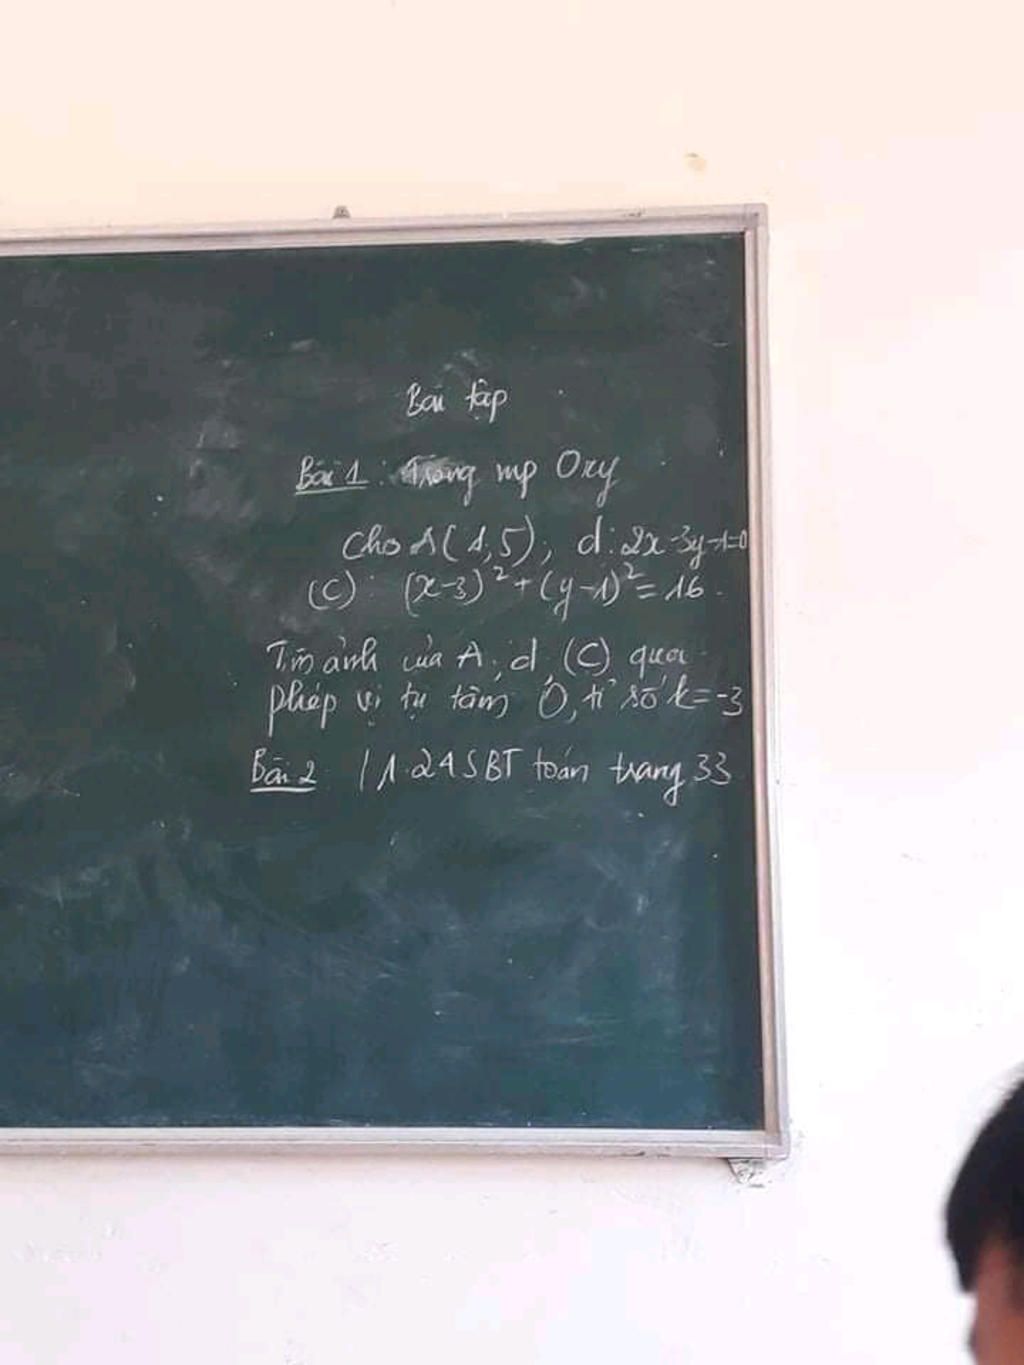 Bài tập
Bài 1: Trong mp Oxy
Cho A(1,5); d: 2x-3y-1=0
(C): (x-3)²+(y-1)²=16.
Tìm ảnh của A, d, (C) qua
phép vị tự tâm O, tỉ số k=-3
Bài 2 1.24 SBT toán trang 33